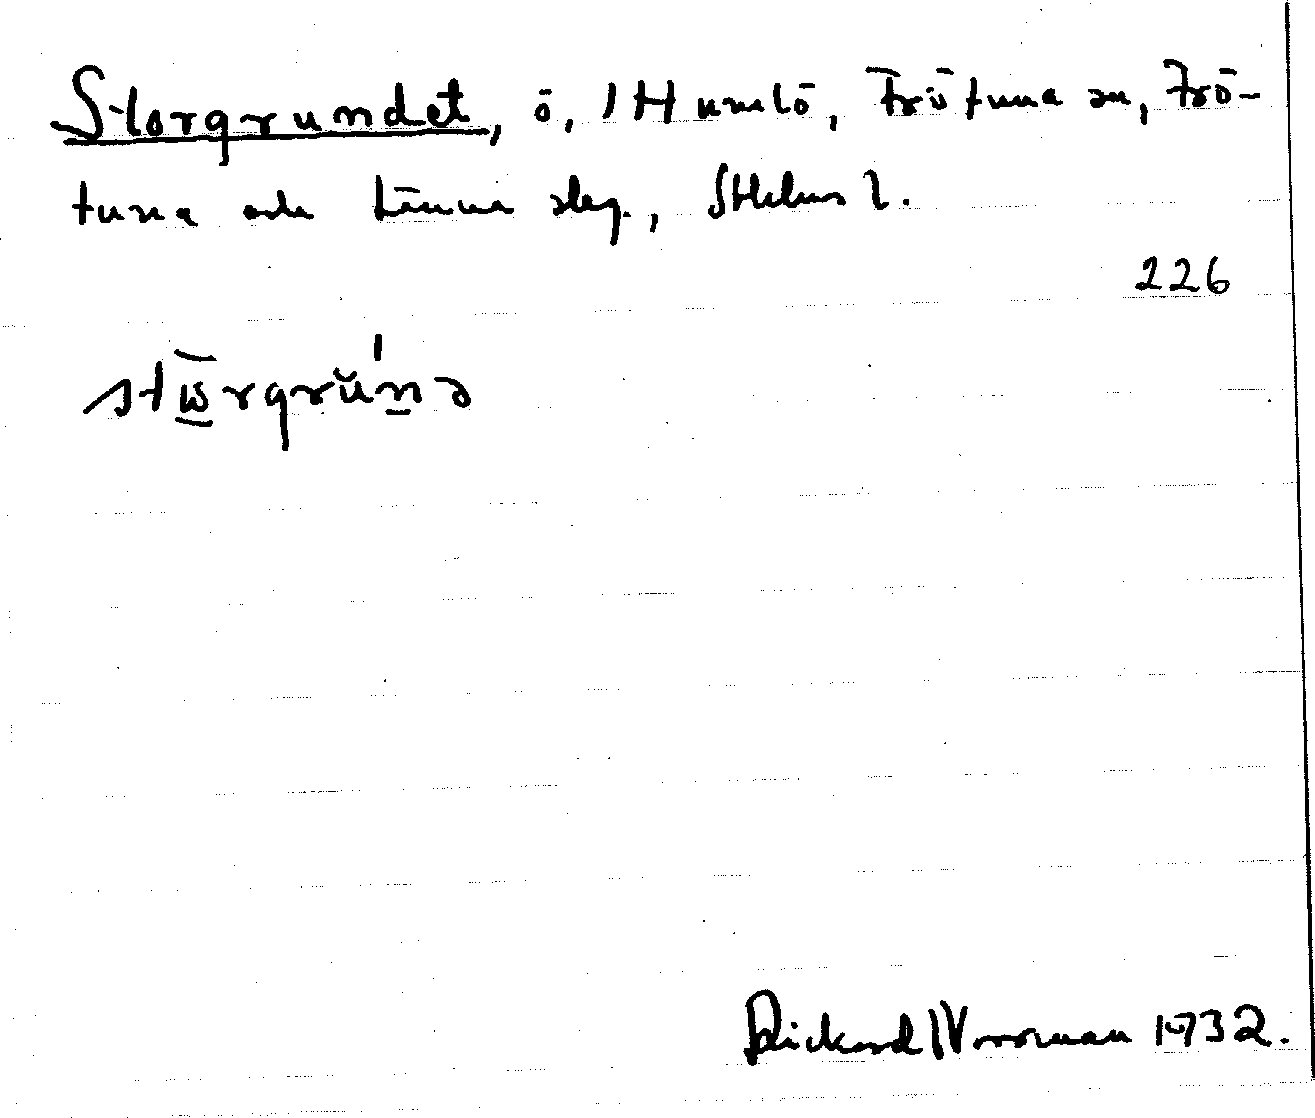 Storgrundet, ö, Humlö, Frötuna sn, Frö-
tuna och Länna skg., Sthlms l.
226
Rickard Broman 1932.